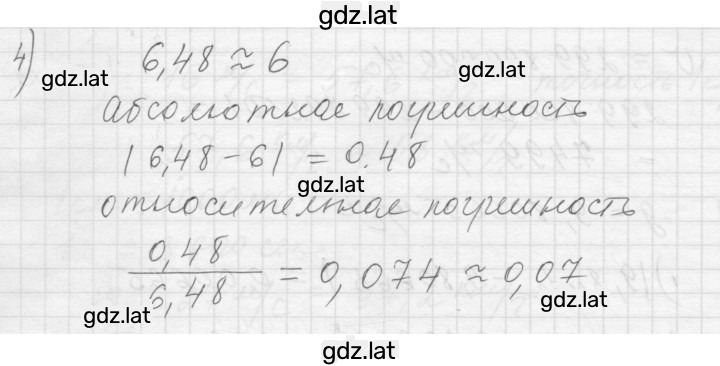 gdz.lat
4) 6,48 ≈ 6
gdz.lat
gdz.lat
абсолютная погрешность
|6,48 - 6| = 0.48
gdz.lat
относительная погрешность
0,48
6,48
= 0,074 ≈ 0,07
gdz.lat
gdz.lat
gdz.lat